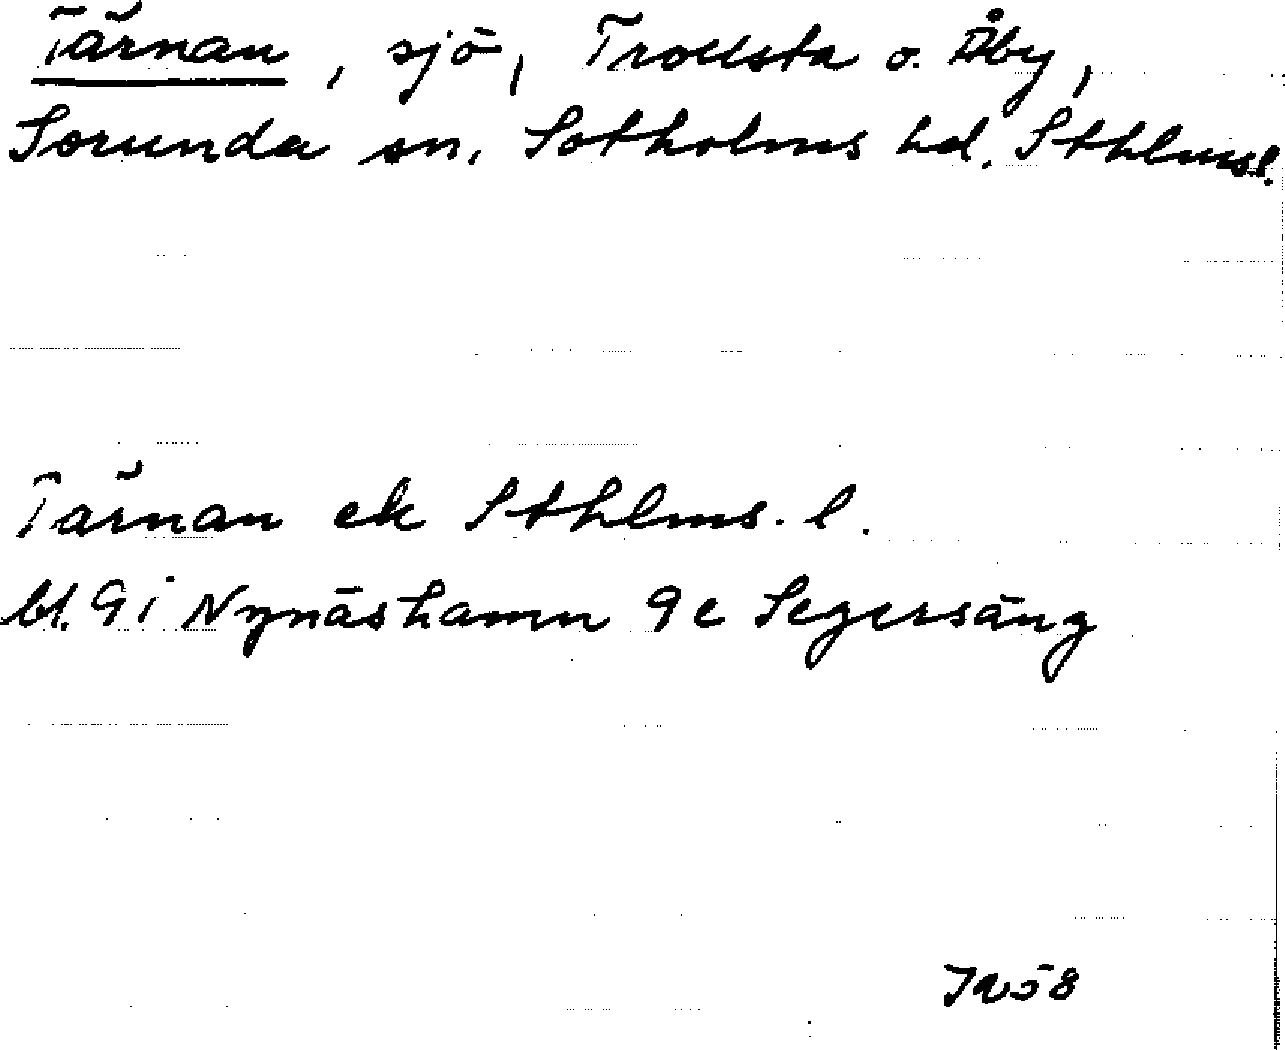 Tärnan, sjö, Trollsta o. Åby,
Sorunda sn, Sotholms hd. Sthlmsl.
Tärnan ek Sthlms. l.
bl. 9 i Nynäshamn 9 e Segersäng